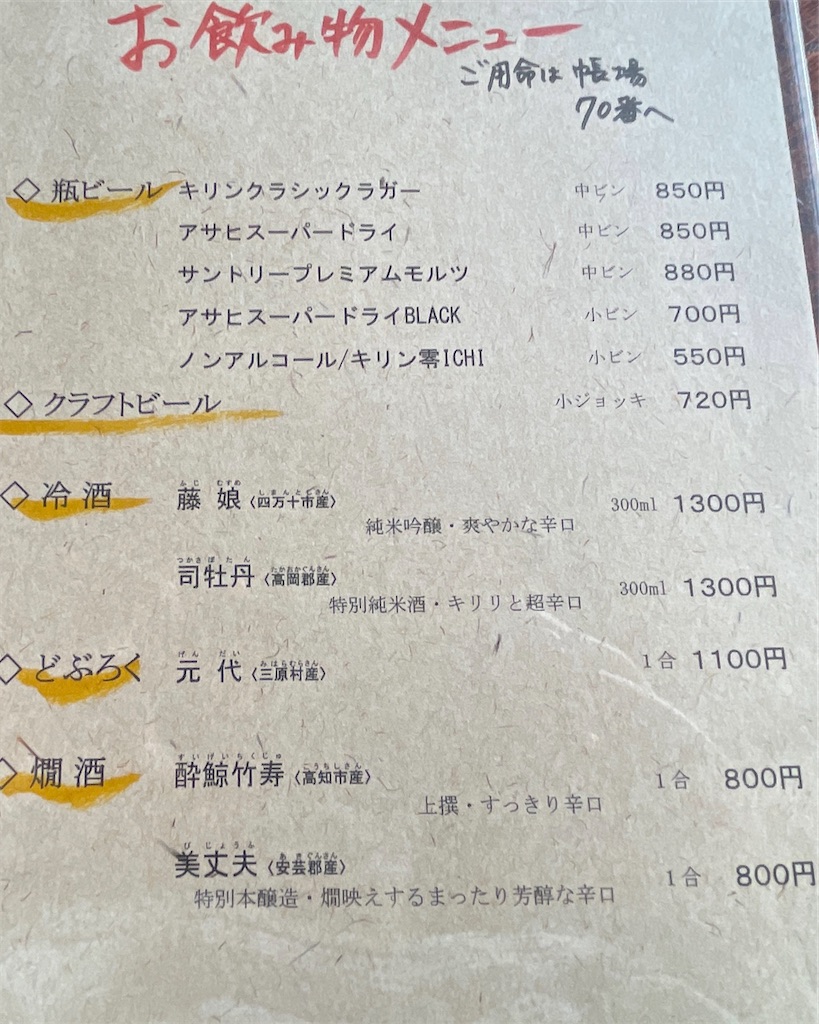 お飲み物メニュー
ご用命は 帳場
70番へ
◇ 瓶ビール キリンクラシックラガー 中ビン 850円
アサヒスーパードライ 中ビン 850円
サントリープレミアムモルツ 中ビン 880円
アサヒスーパードライBLACK 小ビン 700円
ノンアルコール/キリン零ICHI 小ビン 550円
◇ クラフトビール 小ジョッキ 720円
ふじ むすめ しまんとしさん
◇ 冷酒 藤娘〈四万十市産〉 300ml 1300円
純米吟醸・爽やかな辛口
つかさぼたん たかおかぐんさん
司牡丹〈高岡郡産〉 300ml 1300円
特別純米酒・キリリと超辛口
げん だい みはらむらさん
◇ どぶろく 元代〈三原村産〉 1合 1100円
すいげいちくじゅ こうちしさん
◇ 燗酒 酔鯨竹寿〈高知市産〉 1合 800円
上撰・すっきり辛口
びじょうふ あきぐんさん
美丈夫〈安芸郡産〉 1合 800円
特別本醸造・燗映えするまったり芳醇な辛口